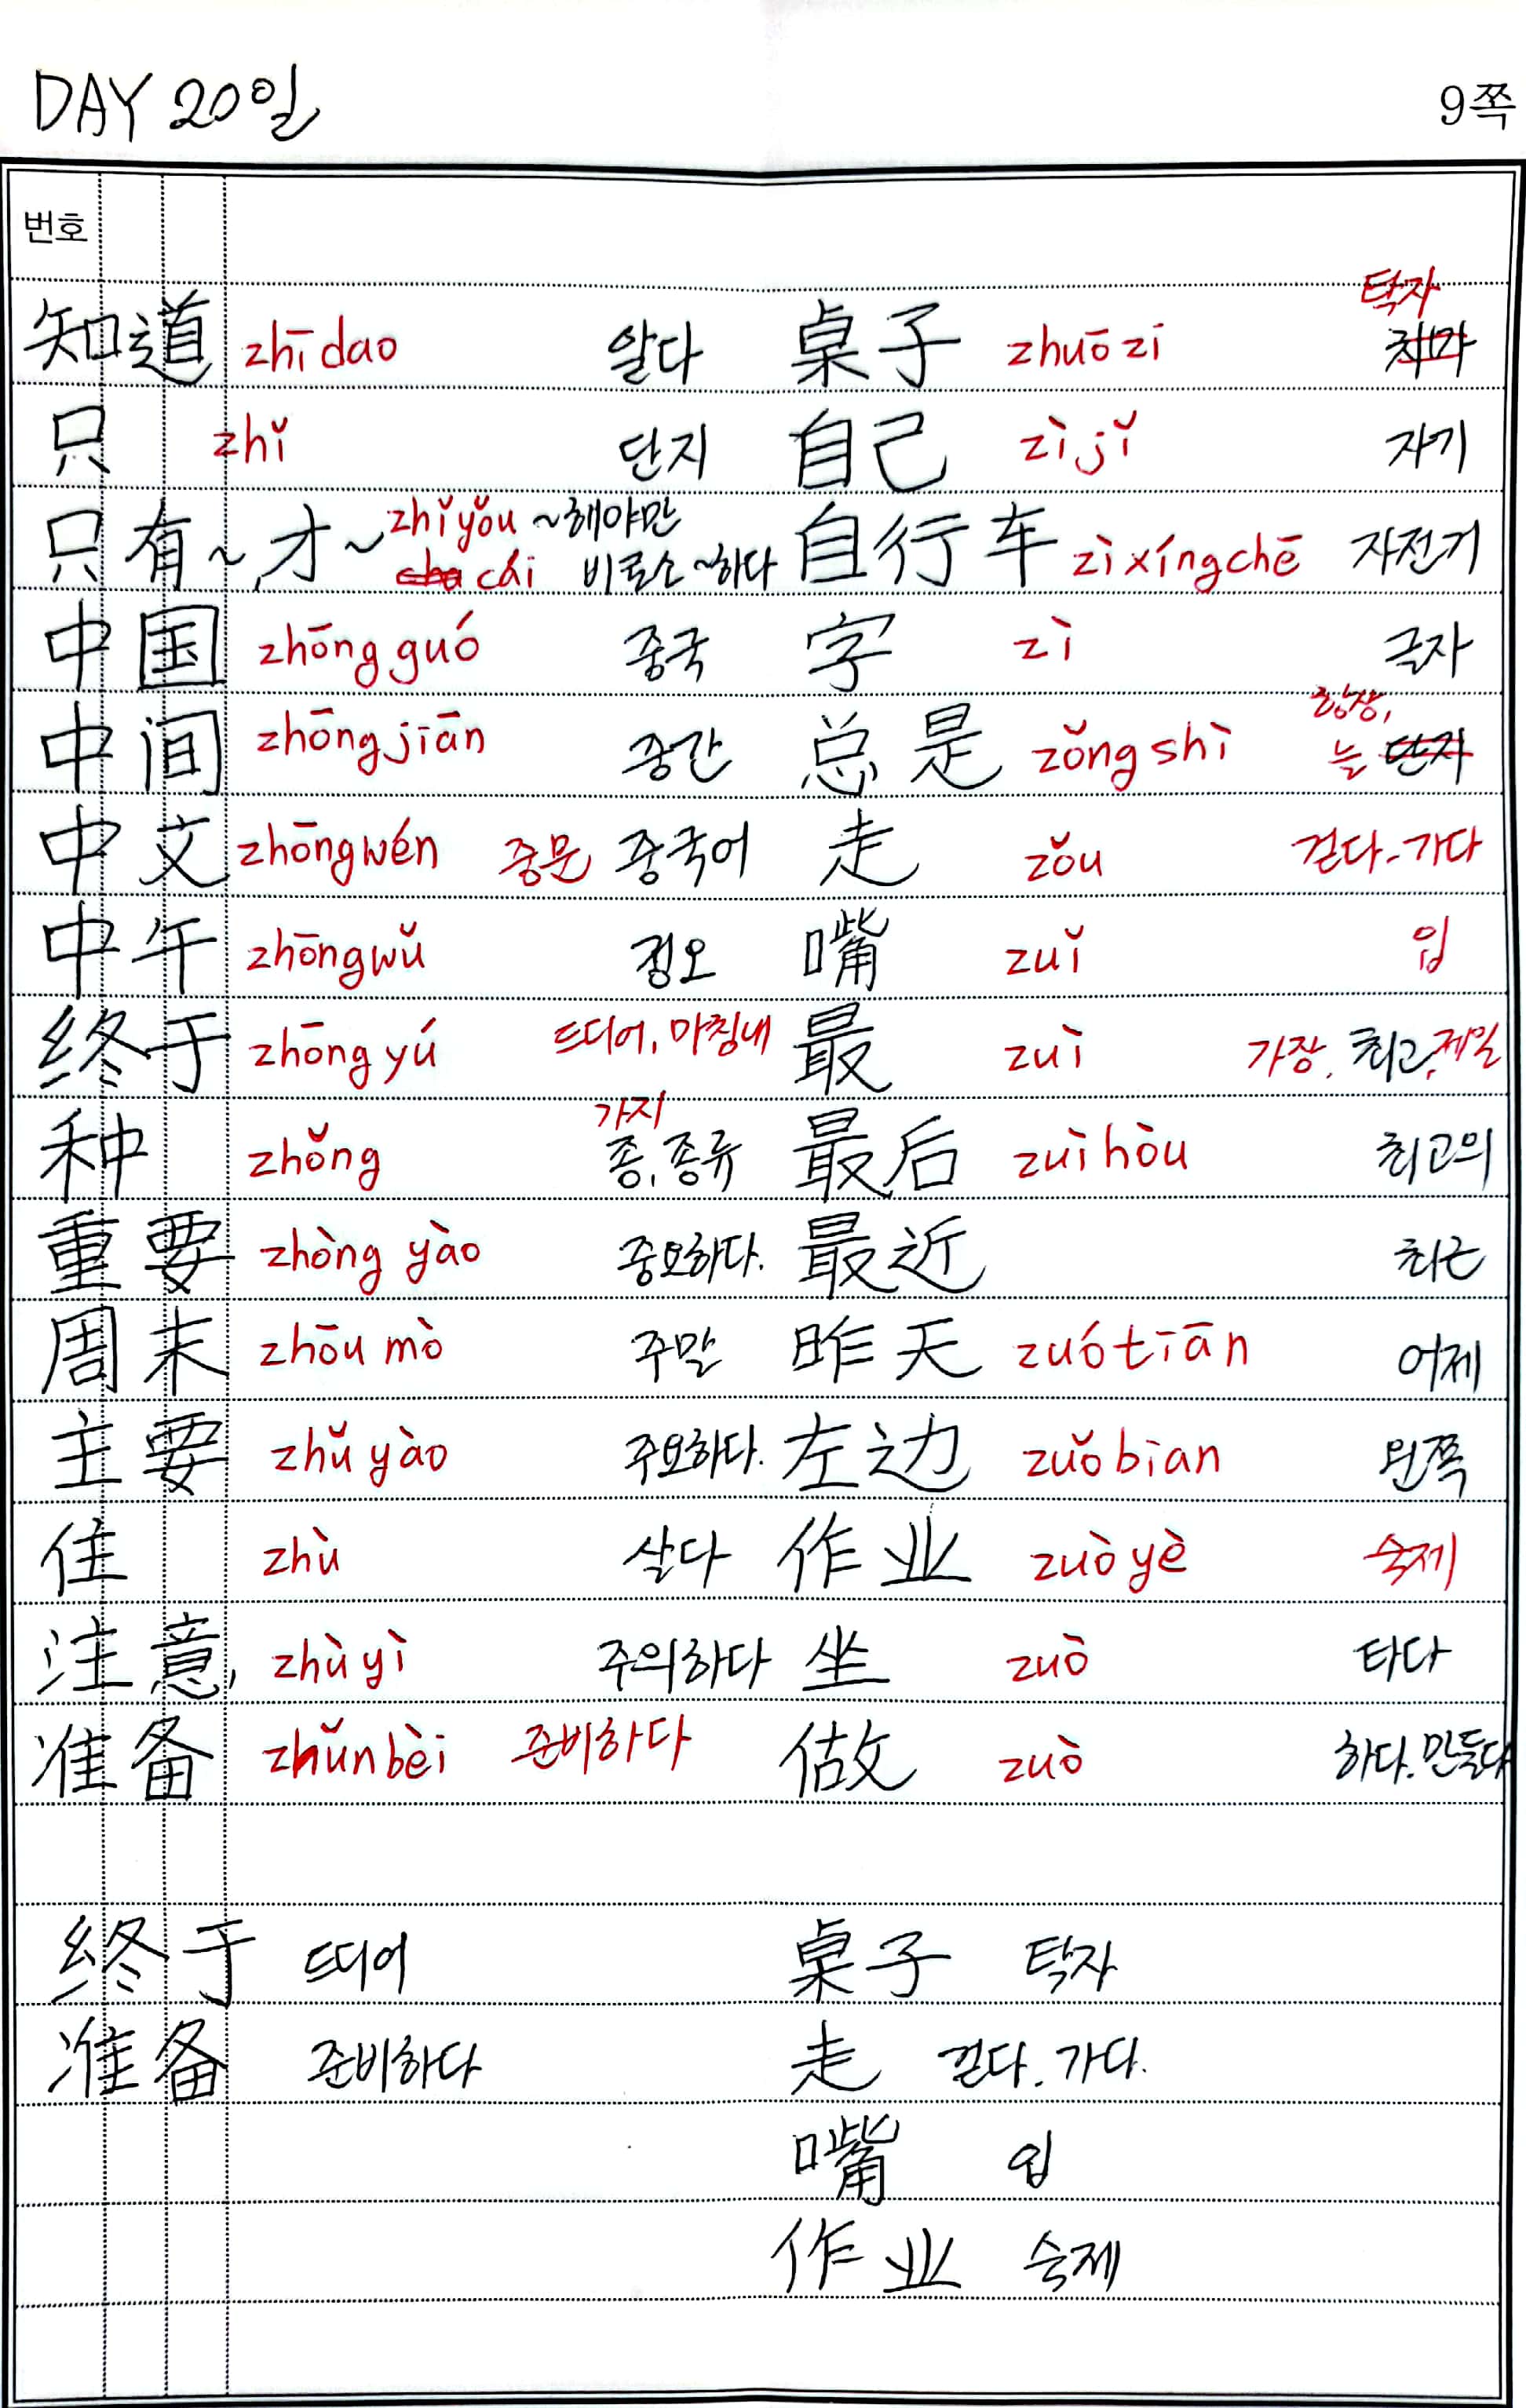 DAY 20일
9쪽
번호
知道 zhīdao 알다 桌子 zhuōzi 탁자 치마
只 zhǐ 단지 自己 zìjǐ 자기
只有~, 才~ zhǐyǒu ~해야만 cha cái 비로소 ~하다 自行车 zìxíngchē 자전거
中国 zhōng guó 중국 字 zì 글자
中间 zhōngjiān 중간 总是 zǒng shì 항상, 늘 단자
中文 zhōngwén 중문 중국어 走 zǒu 걷다. 가다
中午 zhōngwǔ 정오 嘴 zuǐ 입
终于 zhōng yú 뜨디어, 마침내 最 zuì 가장, 최고, 제일
种 zhǒng 가지 종, 종류 最后 zuì hòu 최고의
重要 zhòng yào 중요하다. 最近 최근
周末 zhōu mò 주말 昨天 zuótiān 어제
主要 zhǔ yào 주요하다. 左边 zuǒ bian 왼쪽
住 zhù 살다 作业 zuò yè 숙제
注意 zhù yì 주의하다 坐 zuò 타다
准备 zhǔnbèi 준비하다 做 zuò 하다. 만들다
终于 뜨디어 桌子 탁자
准备 준비하다 走 걷다. 가다.
嘴 입
作业 숙제